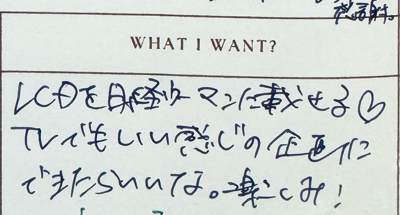 感謝。
WHAT I WANT?
LCDを日経ウーマンに載せる♡
TVでもいい感じの企画に
できたらいいな。楽しみ!